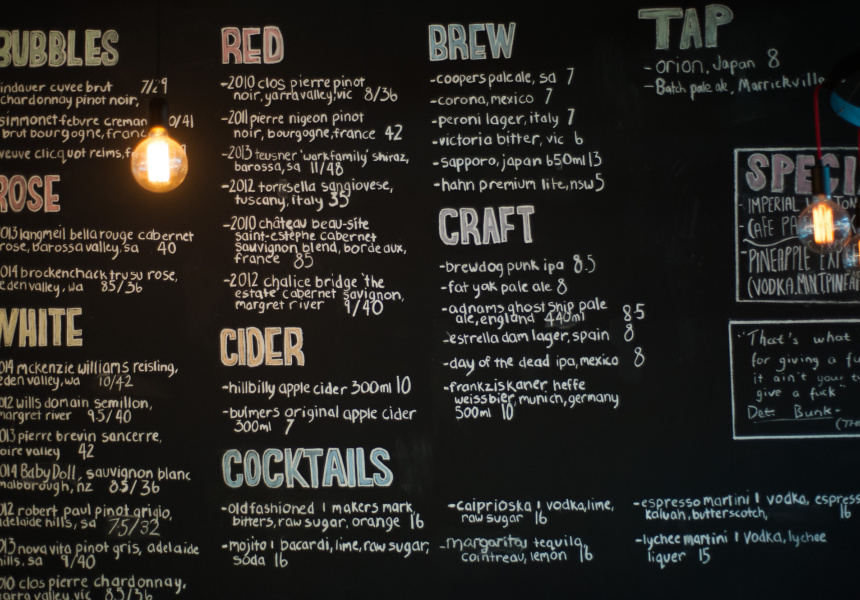 BUBBLES
indauer cuvee brut 7/29
chardonnay pinot noir,
simmonet febvre creman 0/41
brut bourgogne, franc
veuve clicquot reims, f
ROSE
2013 langmeil bella rouge cabernet
rose, barossa valley, sa 40
2014 brockenchack tru su rose,
eden valley, wa 85/36
WHITE
2014 mckenzie williams reisling,
eden valley, wa 10/42
2012 wills domain semillon,
margret river 9.5/40
2013 pierre brevin sancerre,
loire valley 42
2014 BabyDoll, sauvignon blanc
malborough, nz 8.5/36
2012 robert paul pinot grigio,
adelaide hills, sa 7.5/32
2013 nova vita pinot gris, adelaide
hills, sa 9/40
2010 clos pierre chardonnay,
yarra valley vic 8.5/36
RED
-2010 clos pierre pinot
noir, yarra valley, vic 8/36
-2011 pierre nigeon pinot
noir, bourgogne, france 42
-2013 teusner 'wark family' shiraz,
barossa, sa 11/48
-2012 torresella sangiovese,
tuscany, italy 35
-2010 château beau-site
saint-estephe cabernet
sauvignon blend, bordeaux,
france 85
-2012 chalice bridge 'the
estate' cabernet savignon,
margret river 9/40
CIDER
-hillbilly apple cider 300ml 10
-bulmers original apple cider
300ml 7
BREW
-coopers pale ale, sa 7
-corona, mexico 7
-peroni lager, italy 7
-victoria bitter, vic 6
-sapporo, japan 650ml 13
-hahn premium lite, nsw 5
CRAFT
-brewdog punk ipa 8.5
-fat yak pale ale 8
-adnams ghost ship pale
ale, england 440ml 8.5
-estrella dam lager, spain 8
-day of the dead ipa, mexico 8
-frankziskaner heffe
weissbier, munich, germany
500ml 10
TAP
-orion, Japan 8
-Batch pale ale, Marrickville
SPECI
-IMPERIAL
-CAFE PA
PINEAPPLE EXP
(VODKA, MINT, PINEA
"That's what
for giving a fu
it ain't your t
give a fuck"
Det. Bunk-
COCKTAILS
-old fashioned | makers mark,
bitters, raw sugar, orange 16
-mojito | bacardi, lime, raw sugar,
soda 16
-caiprioska | vodka, lime,
raw sugar 16
-margarita | tequila,
cointreau, lemon 16
-espresso martini | vodka, espress
kaluah, butterscotch, 16
-lychee martini | vodka, lychee
liquer 15